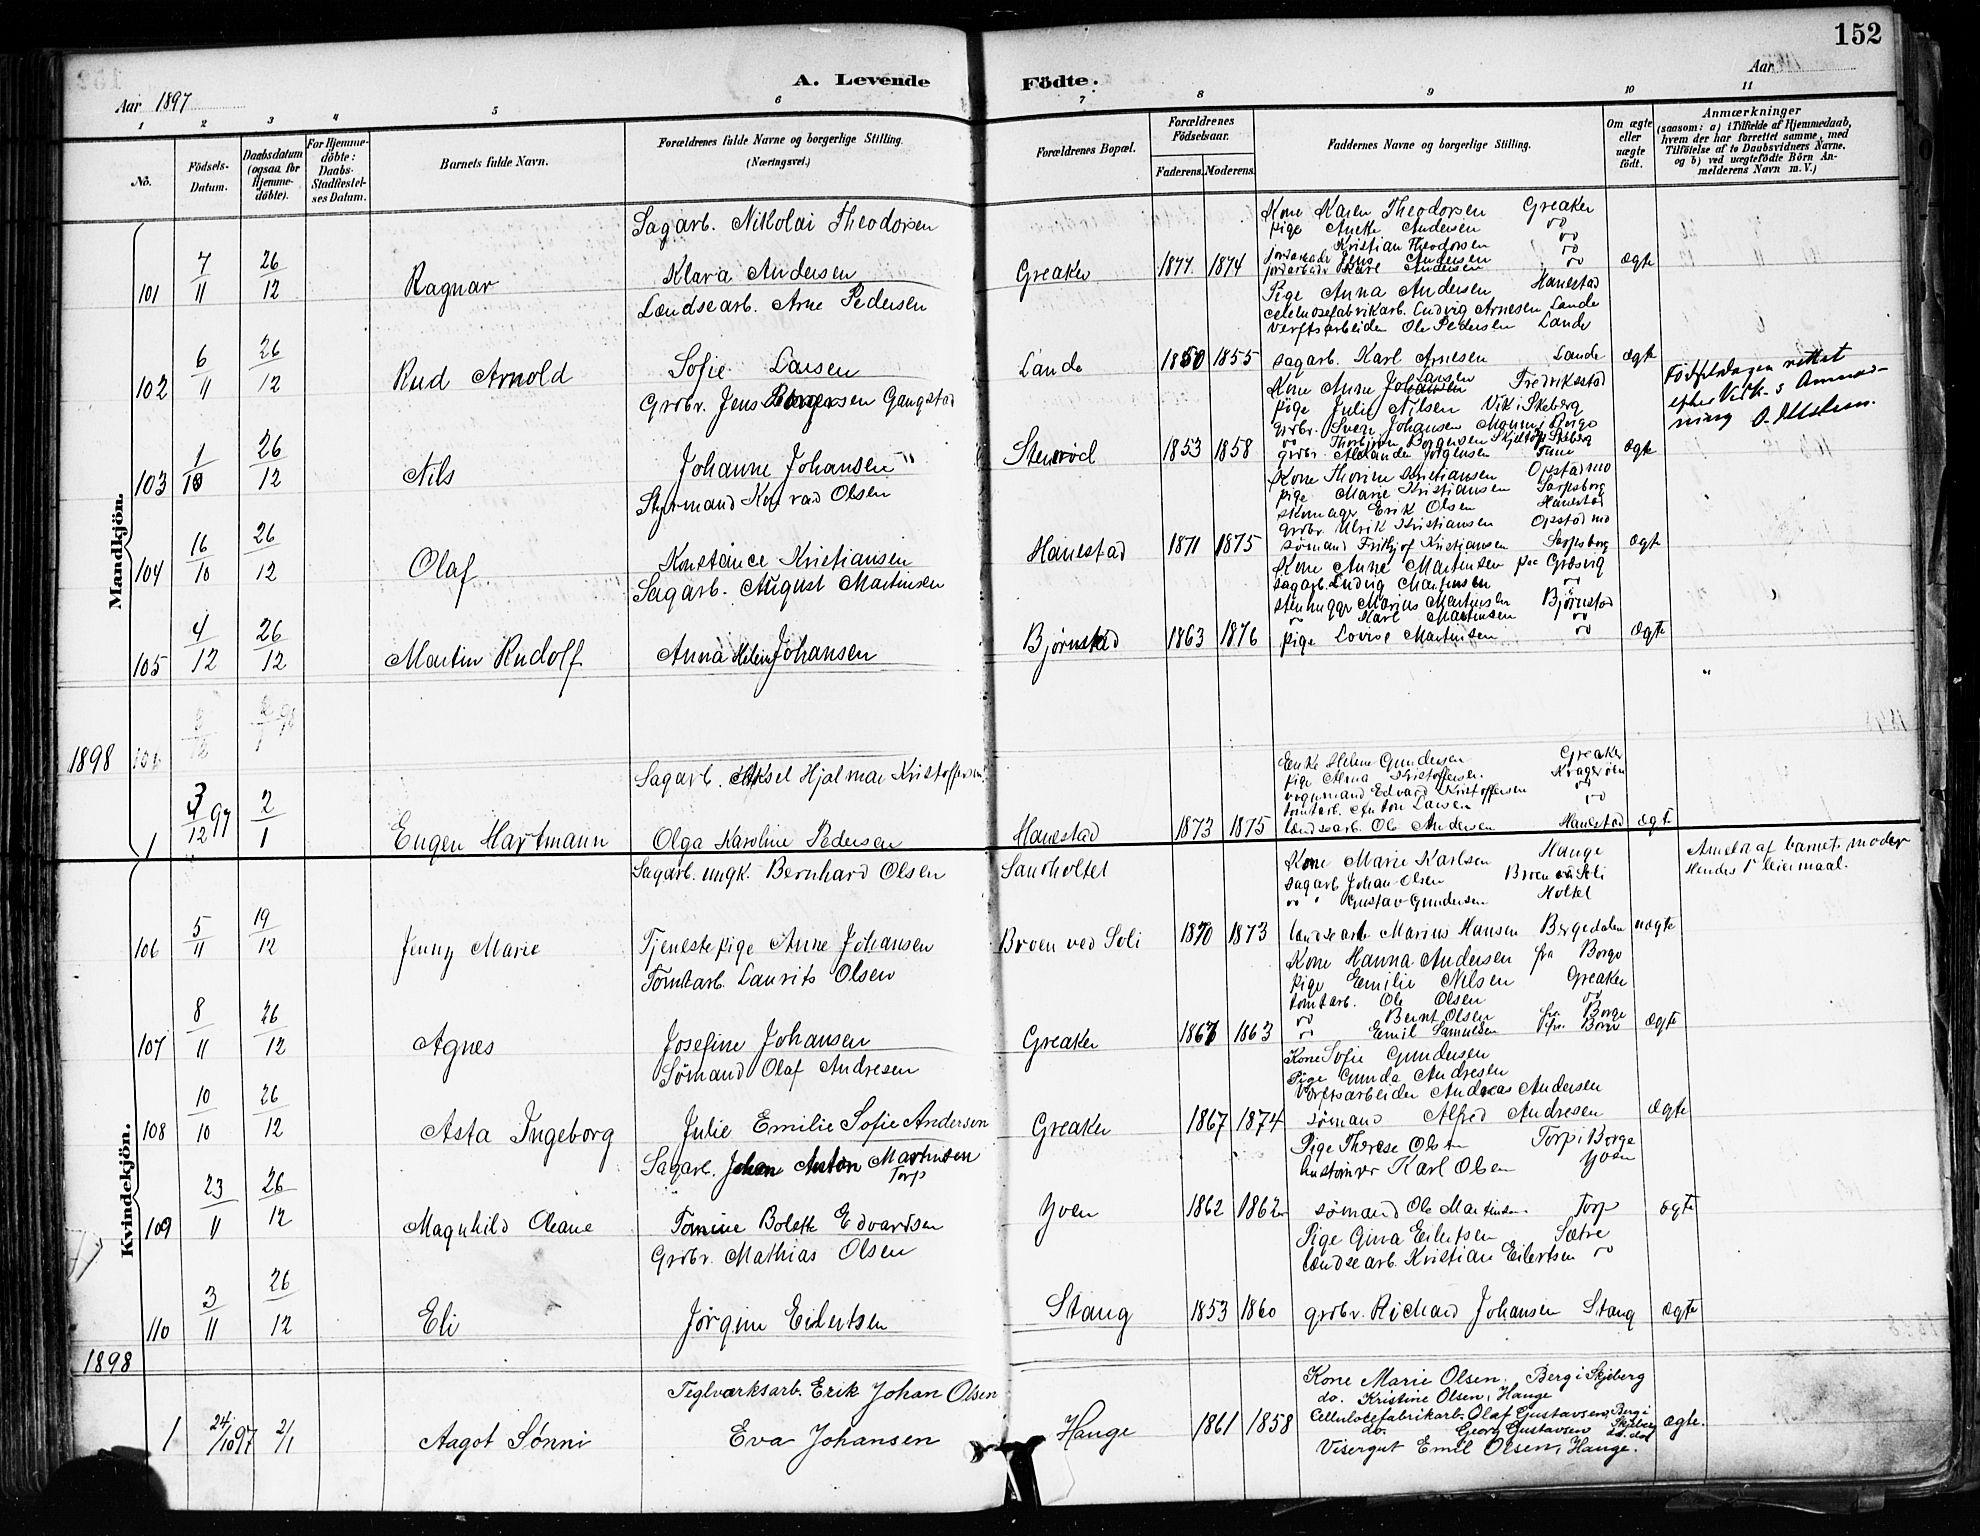 152
A. Levende Födte.
Aar 1897
Aar
1 2 3 4 5 6 7 8 9 10 11
No.
Födsels-Datum.
Daabsdatum (ogsaa for Hjemme-döbte).
For Hjemme-döbte: Daabs-Stadfæstel-ses Datum.
Barnets fulde Navn.
Forældrenes fulde Navne og borgerlige Stilling. (Næringsvei.)
Forældrenes Bopæl.
Forældrenes Födselsaar.
Faderens. Moderens.
Faddernes Navne og borgerlige Stilling.
Om ægte eller uægte födt.
Anmærkninger
(saasom: a) i Tilfælde af Hjemmedaab, hvem der har forrettet samme, med Tilföielse af to Daabsvidners Navne, og b) ved uægtefödte Börn An-melderens Navn m. V.)
Mandkjön.
101 7/11 26/12 Ragnar
Sagarb. Nikolai Theodorsen
Klara Andersen
Greaker 1877 1874
Kone Karen Theodorsen Greaker
pige Anette Andersen do
Kristian Theodorsen do
jordarbeid Karl Andersen do
ægte
102 6/11 26/12 Rud Arnold
Lændsearb. Arne Pedersen
Sofie Larsen
Lande 1850 1855
Pige Anna Andersen Hanestad
Cellulosefabrikarb. Ludvig Arnesen Lande
Verftsarbeider Ole Pedersen Lande
sagarb. Karl Arnesen Lande
ægte
103 1/10 26/12 Nils
Grdbr. Jens Borgersen Gangstad
Johanne Johansen
Stenrød 1853 1858
Kone Anne Johansen Larsen Fredriksstad
pige Julie Nilsen Vik i Skeberg
Grdbr. Sven Johansen Borge
do Thorbjørn Borgersen Skjeberg
grdbr. Alexander Jørgensen Tune
ægte
Födselsdagen rettet
104 16/10 26/12 Olaf
Styrmand Konrad Olsen
Konstance Kristiansen
Hanestad 1871 1875
Kone Thorine Kristiansen Opstad mo
pige Marie Kristiansen Sarpsborg
skomager Erik Olsen Hanestad
grdbr. Ulrik Kristiansen Opstad mo
sømand Frithjof Kristiansen Sarpsborg
ægte
105 4/12 26/12 Martin Rudolf
Sagarb. August Martinsen
Anna Helene Johansen
Bjørnstad 1863 1876
Kone Anne Martinsen
sagarb. Ludvig Martinsen do
stenhugger Marius Martinsen Bjørnstad
do Karl Martinsen do
pige Lovise Martinsen do
ægte
1898
1 3/12 97 2/1 Eugen Hartmann
Sagarb. Aksel Hjalmar Kristoffersen
Olga Karoline Pedersen
Hanestad 1873 1875
Enke Helene Gundersen Greaker
pige Alma Kristoffersen Kragerøen
vognmand Edvard Kristoffersen do
tomtarb. Anton Larsen do
lændsearb. Ole Andersen Hanestad
ægte
Kvindekjön.
106 5/11 19/12 Jenny Marie
Sagarb. ungk. Bernhard Olsen
Tjenestepige Anne Johansen
Sandholtet
Broen ved Soli 1870 1873
Kone Marie Karlsen Hauge
sagarb Johan Olsen Broen ved Soli
do Gustav Gundersen Holtet
lændsearb Marius Hansen Bergedalen
uægte
Anmeldt af barnets moder
Hendes 1ste leiermaal.
107 8/11 26/12 Agnes
Tomtarb. Laurits Olsen
Josefine Johansen
Greaker 1867 1863
Kone Hanna Andersen fra Borge
pige Emilie Nilsen Greaker
tomtarb. Ole Olsen do
do Bernt Olsen fra Borge
do Emil Samuelsen fra Borge
ægte
108 10/10 26/12 Asta Ingeborg
Sømand Olaf Andresen
Julie Emilie Sofie Andersen
Greaker 1867 1874
Kone Sofie Gundersen
Pige Gunda Andresen
Verftsarbeider Andreas Andersen
sømand Alfred Andresen
ægte
109 23/11 26/12 Magnhild Oleane
Sagarb. Johan Anton Martinsen Torp
Tomine Bolette Edvardsen
Yven 1862 1862
Pige Therese Olsen Torp i Borge
hustømrer Karl Olsen Yven
sømand Ole Martinsen Torp
ægte
110 3/11 26/12 Eli
Grdbr. Mathias Olsen
Jørgine Eilertsen
Stang 1853 1860
Pige Gina Eilertsen Sætre
lændsearb. Kristian Eilertsen do
grdbr. Richard Johansen Stang
ægte
1898
1 24/10 97 2/1 Aagot Sønni
Teglværksarb. Erik Johan Olsen
Eva Johansen
Hauge 1861 1858
Kone Marie Olsen, Berg i Skjeberg
do. Kristine Olsen, Hauge
Cellulosefabrikarb. Olaf Gustavsen, Berg i Skjeberg
do. Georg Gustavsen do. do.
Visergut Emil Olsen, Hauge.
ægte.